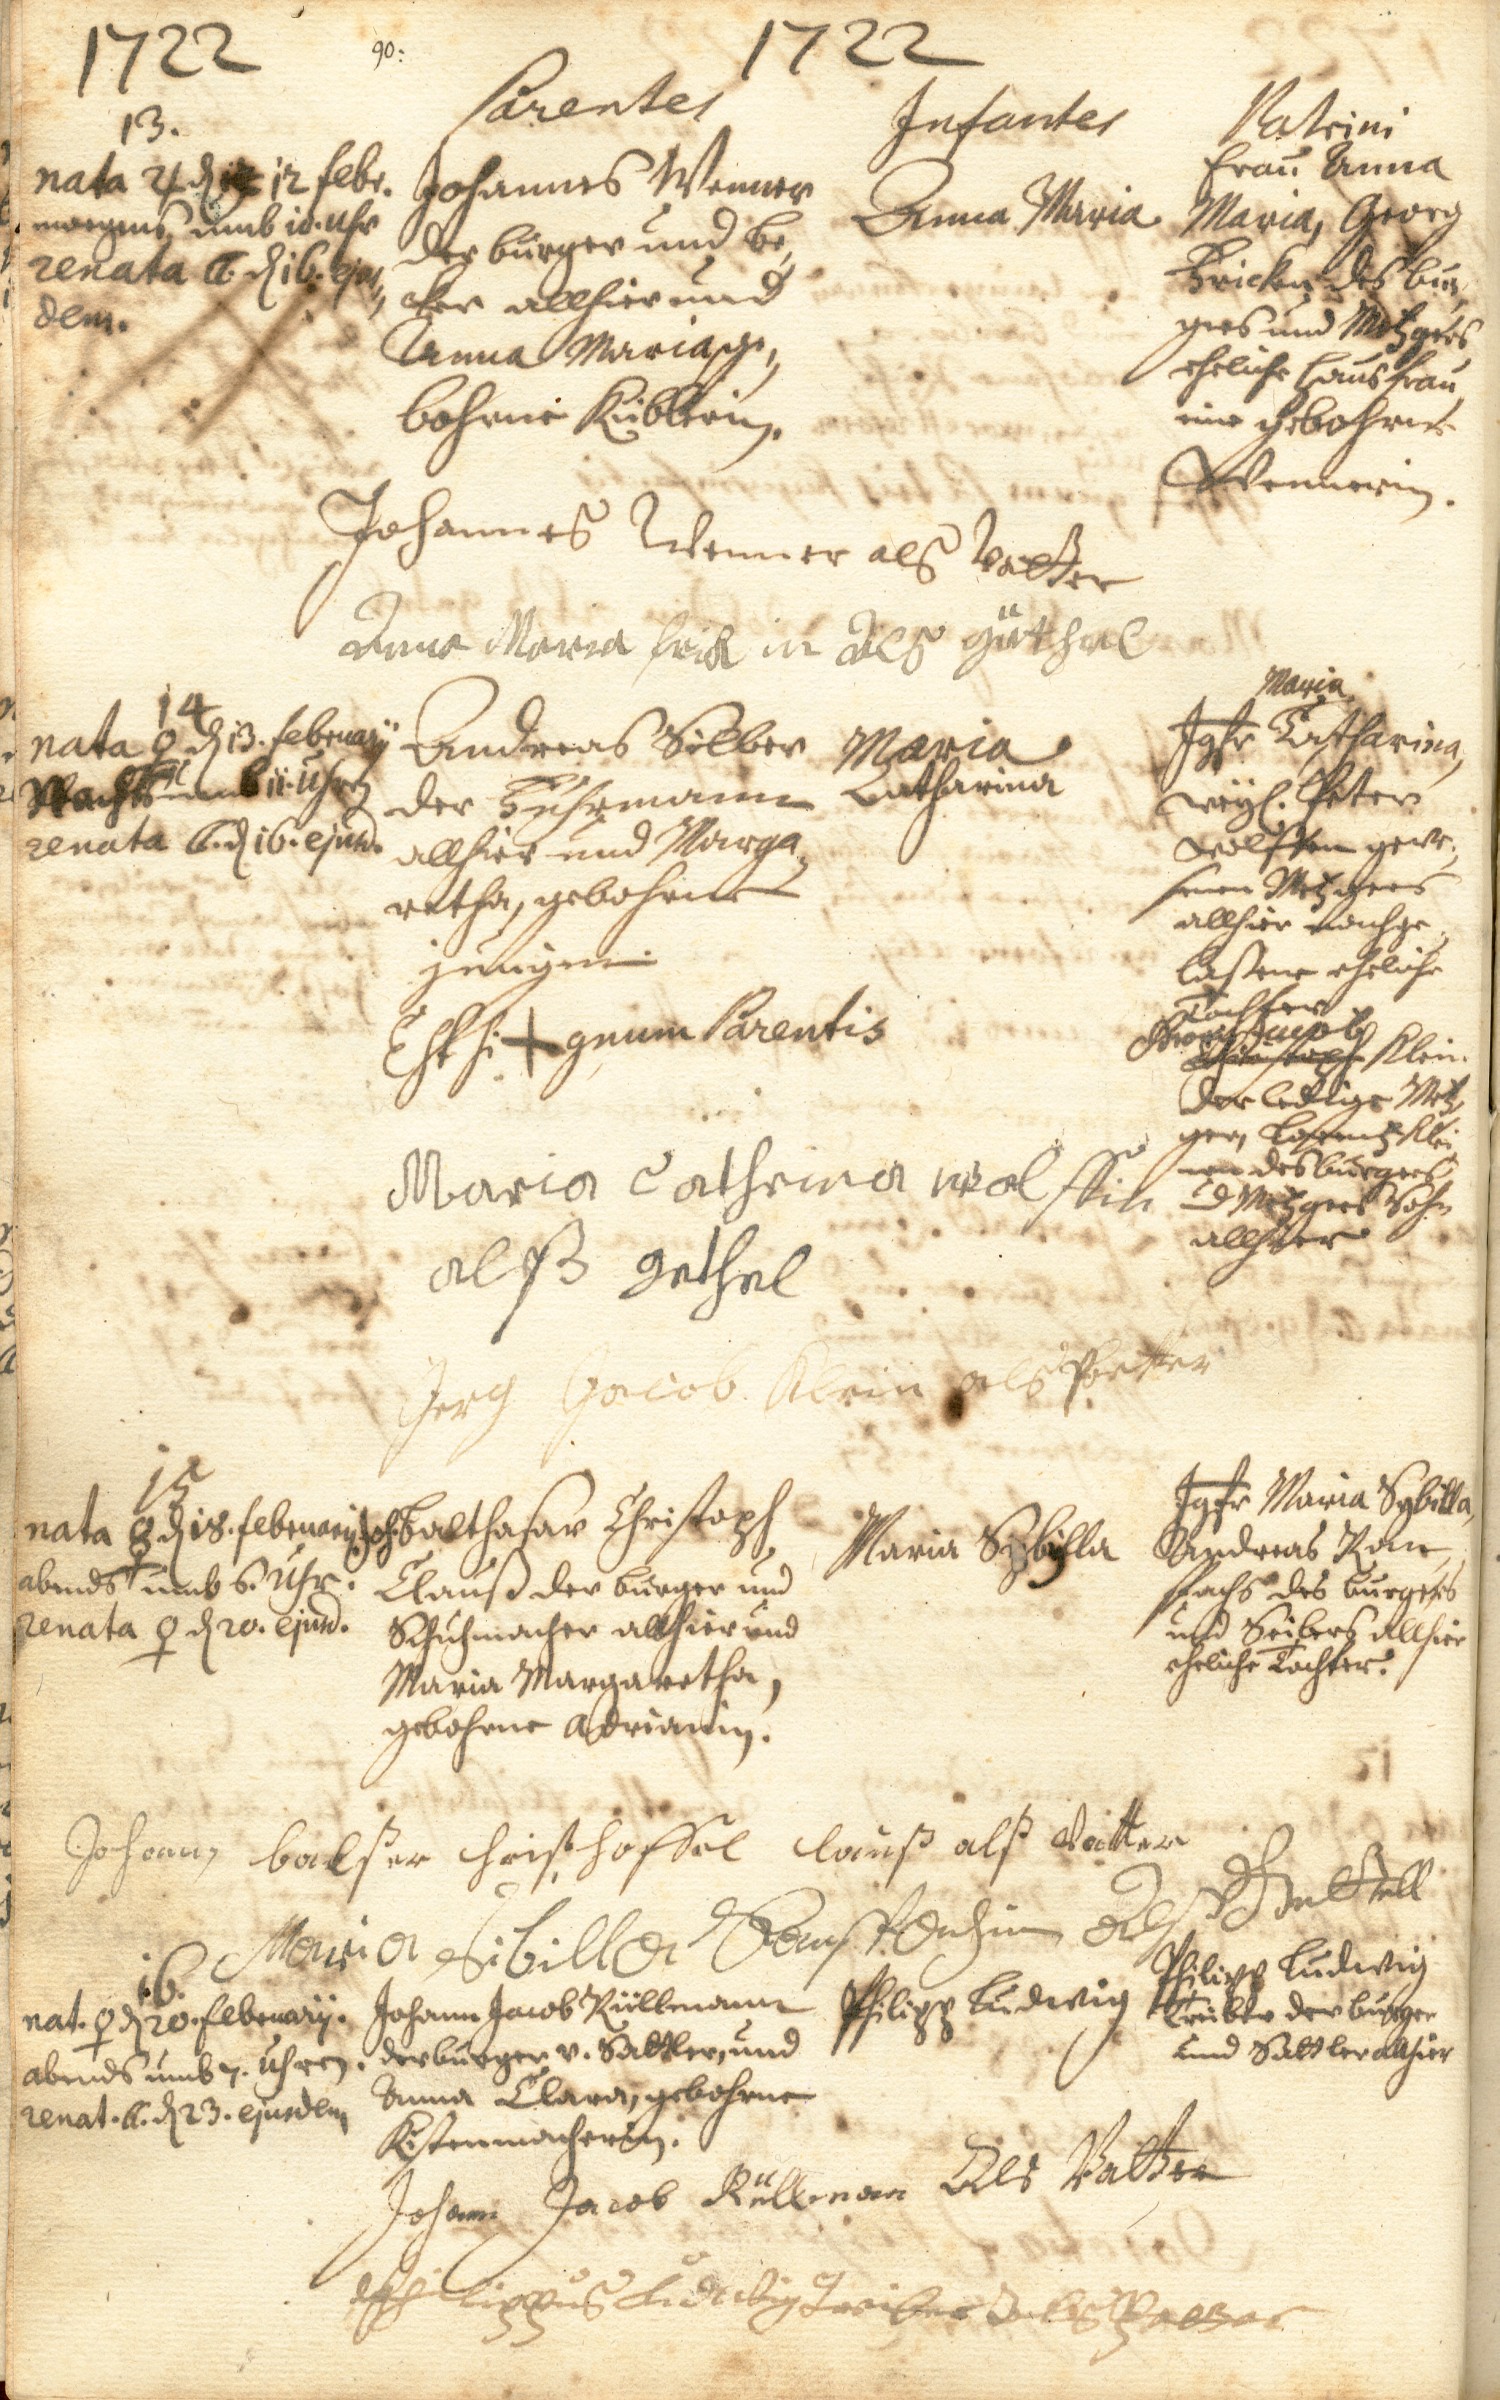 1722
90:
1722
Parentes
Infantes
Patrini
13.
nata ♃ d 12 febr.
morgens umb 10. uhr
renata ☾. d 16. ejus,
dem.
Johannes Wenner
der burger und be,
cker allhier und
Anna Maria, ge,
bohrne Küblerin.
Anna Maria.
Frau Anna
Maria, Georg
Fricken des bur,
gers und Metzgers
eheliche Hausfrau
eine gebohrne
Wennerin.
Johannes Wenner als Vatter
Anna Maria frick in Als göthel
14
nata ♀ d 13. february
Nachts umb 11. Uhren
renata ☾. d 16. ejusd.
Andreas Silber
der Fuhrmann
allhier und Marga,
retha, gebohrne
jungin.
Maria
Catharina
Maria
Jgfr Catharina,
weyl. Peter
Wolffen gewe,
senen Metzgers
allhier nachge,
laßene eheliche
Tochter
Georg Jacob
Christoph Klein
der ledige Metz,
ger, Lorentz Klei
nen des burgers
u Metzgers Sohn
allhier
+ gnum Parentis
Maria Cathrina wolffin
alß gethel
Jerg Jacob Klein als Petter
15
nata ☿ d 18. february
abends umb 6. Uhr.
renata ♀ d 20. ejusd.
Joh. Balthasar Christoph
Clauß der burger und
Schuhmacher allhier und
Maria Margaretha,
gebohrne Adrianin.
Maria Sybilla
Jgfr Maria Sybilla,
Andreas Ram,
stachs des burgers
und Seilers allhier
eheliche Tochter.
Johann balßer christhoffel clauß alß Vatter
Maria Sibilla als
16.
nat. ♀ d 20. february.
abends umb 7. Uhren.
renat. ☾. d 23. ejusdem
Johann Jacob Rüllmann
der burger v. Sattler, und
Anna Clara, gebohrne
Kistenmacherin.
Philipp Ludwig
Philipp Ludwig
der burger
und Sattler allhier
Johann Jacob Rüllman Als Vatter
Philippus Ludwig als